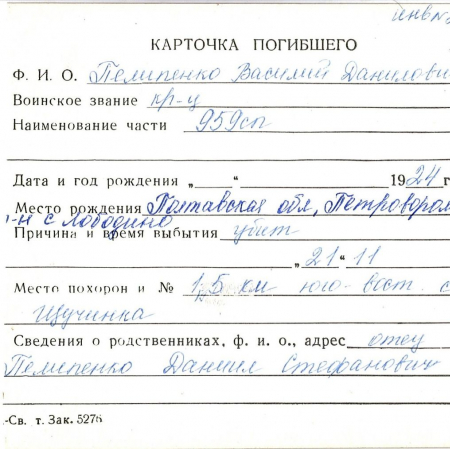 инв№
КАРТОЧКА ПОГИБШЕГО
Ф. И. О. Пелипенко Василий Данилови
Воинское звание кр-ц
Наименование части 959сп
Дата и год рождения „ “ 1924 г
Место рождения Полтавская обл, Петровором
-н с Лободино
Причина и время выбытия убит
„21“ 11
Место похорон и № 1,5 км юго-вост. с
Щучинка
Сведения о родственниках, ф. и. о., адрес отец
Пелипенко Даниил Стефанович
-Св. т. Зак. 5276